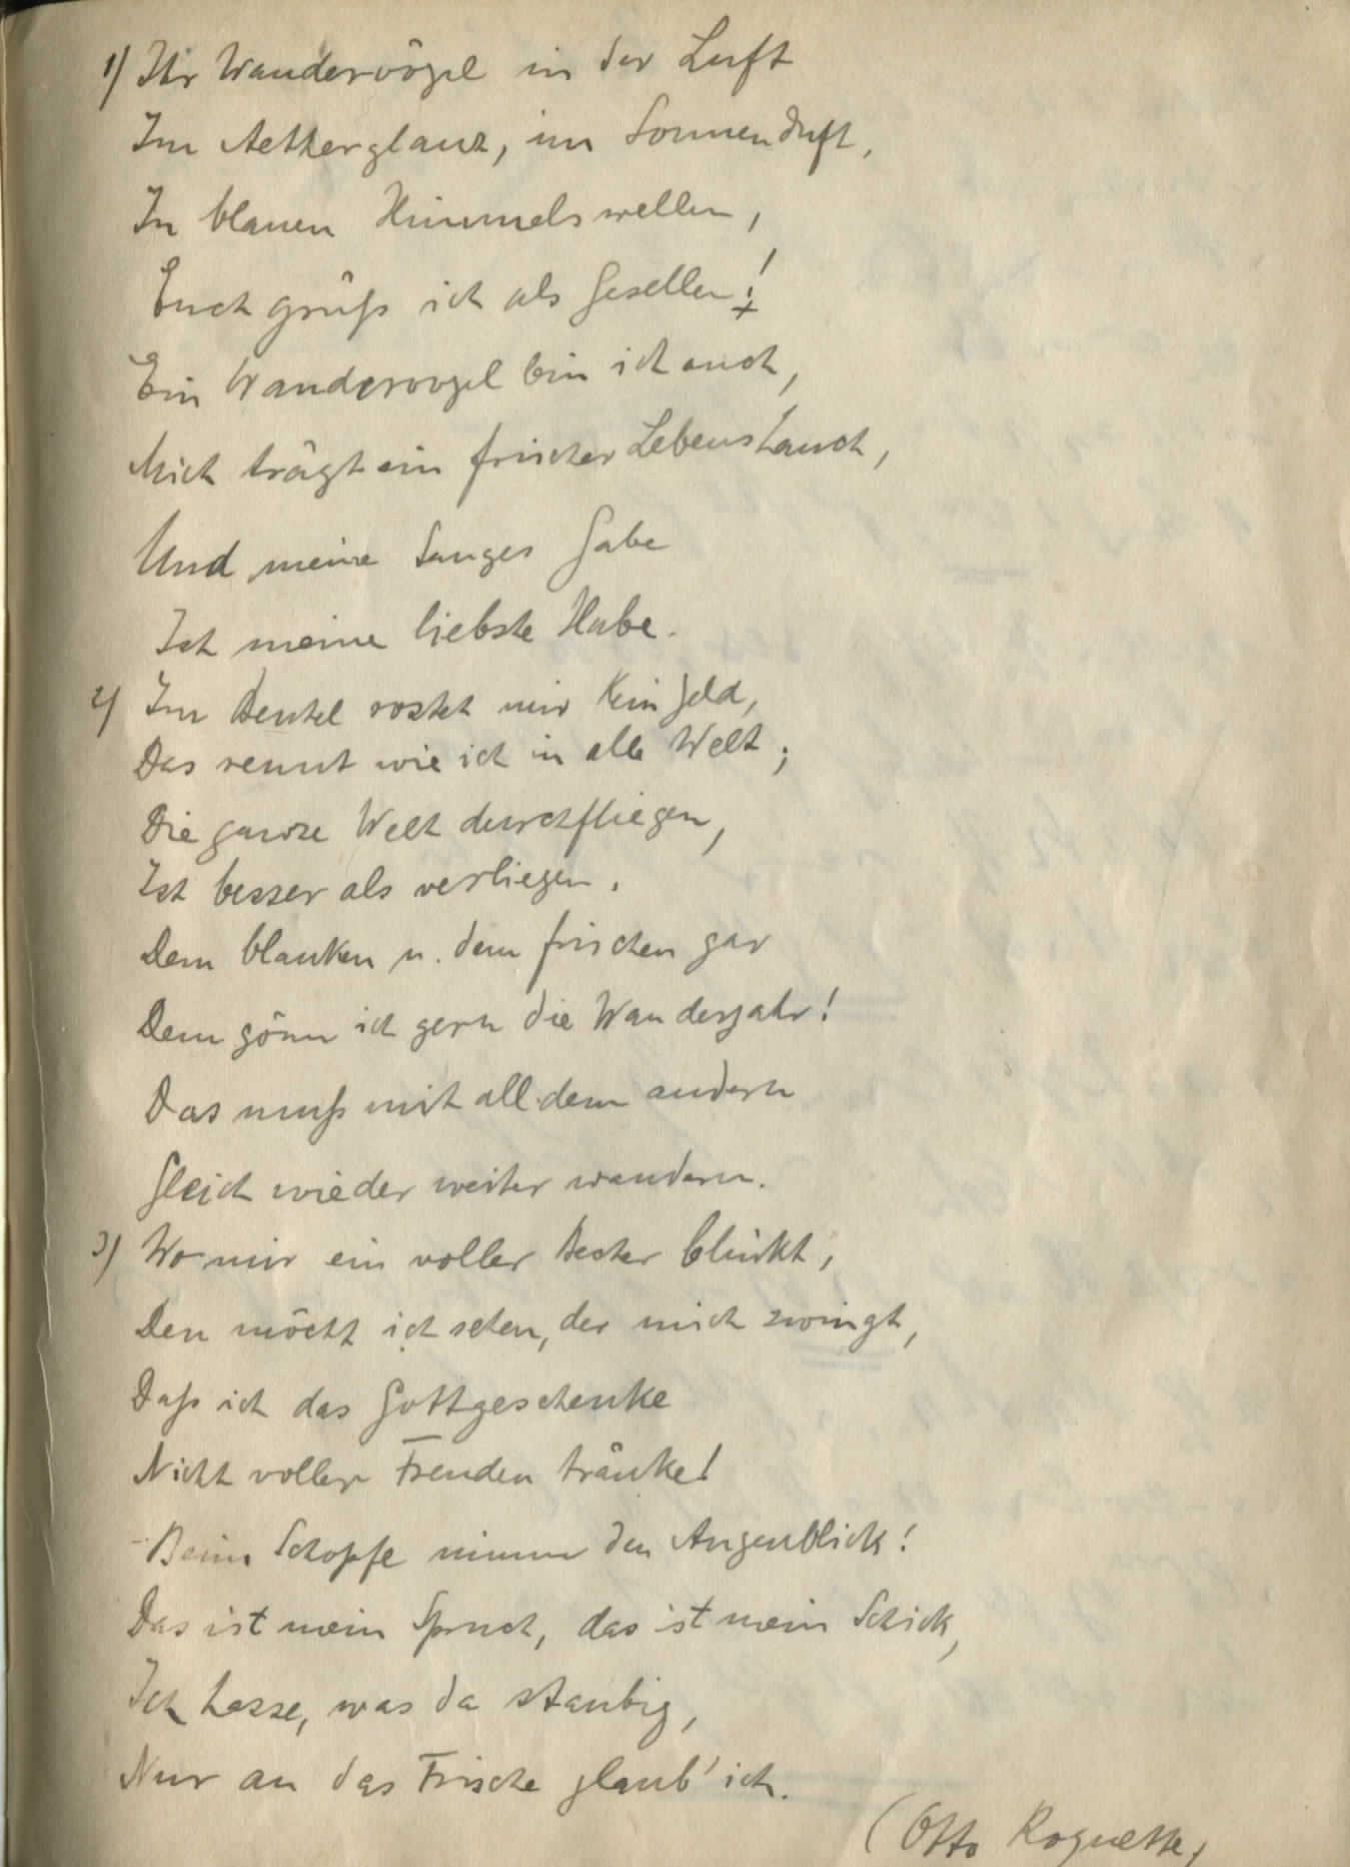 1) Ihr Wandervögel in der Luft
Im Aetherglanz, im Sonnenduft,
In blauen Himmelswellen,
Euch grüß ich als Gesellen!
Ein Wandervogel bin ich auch,
Mich trägt ein frischer Lebenshauch,
Und meine Sanges Gabe
Ist meine liebste Habe.
2) Im Beutel rostet mir kein Geld,
Das rennt wie ich in alle Welt;
Die ganze Welt durchfliegen,
Ist besser als verliegen.
Dem blanken u. dem frischen gar
Dem gönn ich gern die Wanderjahr!
Das muß mit all dem andern
Gleich wieder weiter wandern.
3) Wo mir ein voller Becher blinkt,
Den möcht ich sehen, der mich zwingt,
Daß ich das Gottgeschenke
Nicht voller Freuden tränke!
Beim Schopfe nimm den Augenblick!
Das ist mein Spruch, das ist mein Schick,
Ich hasse, was da staubig,
Nur an das Frische glaub' ich.
(Otto Roquette)